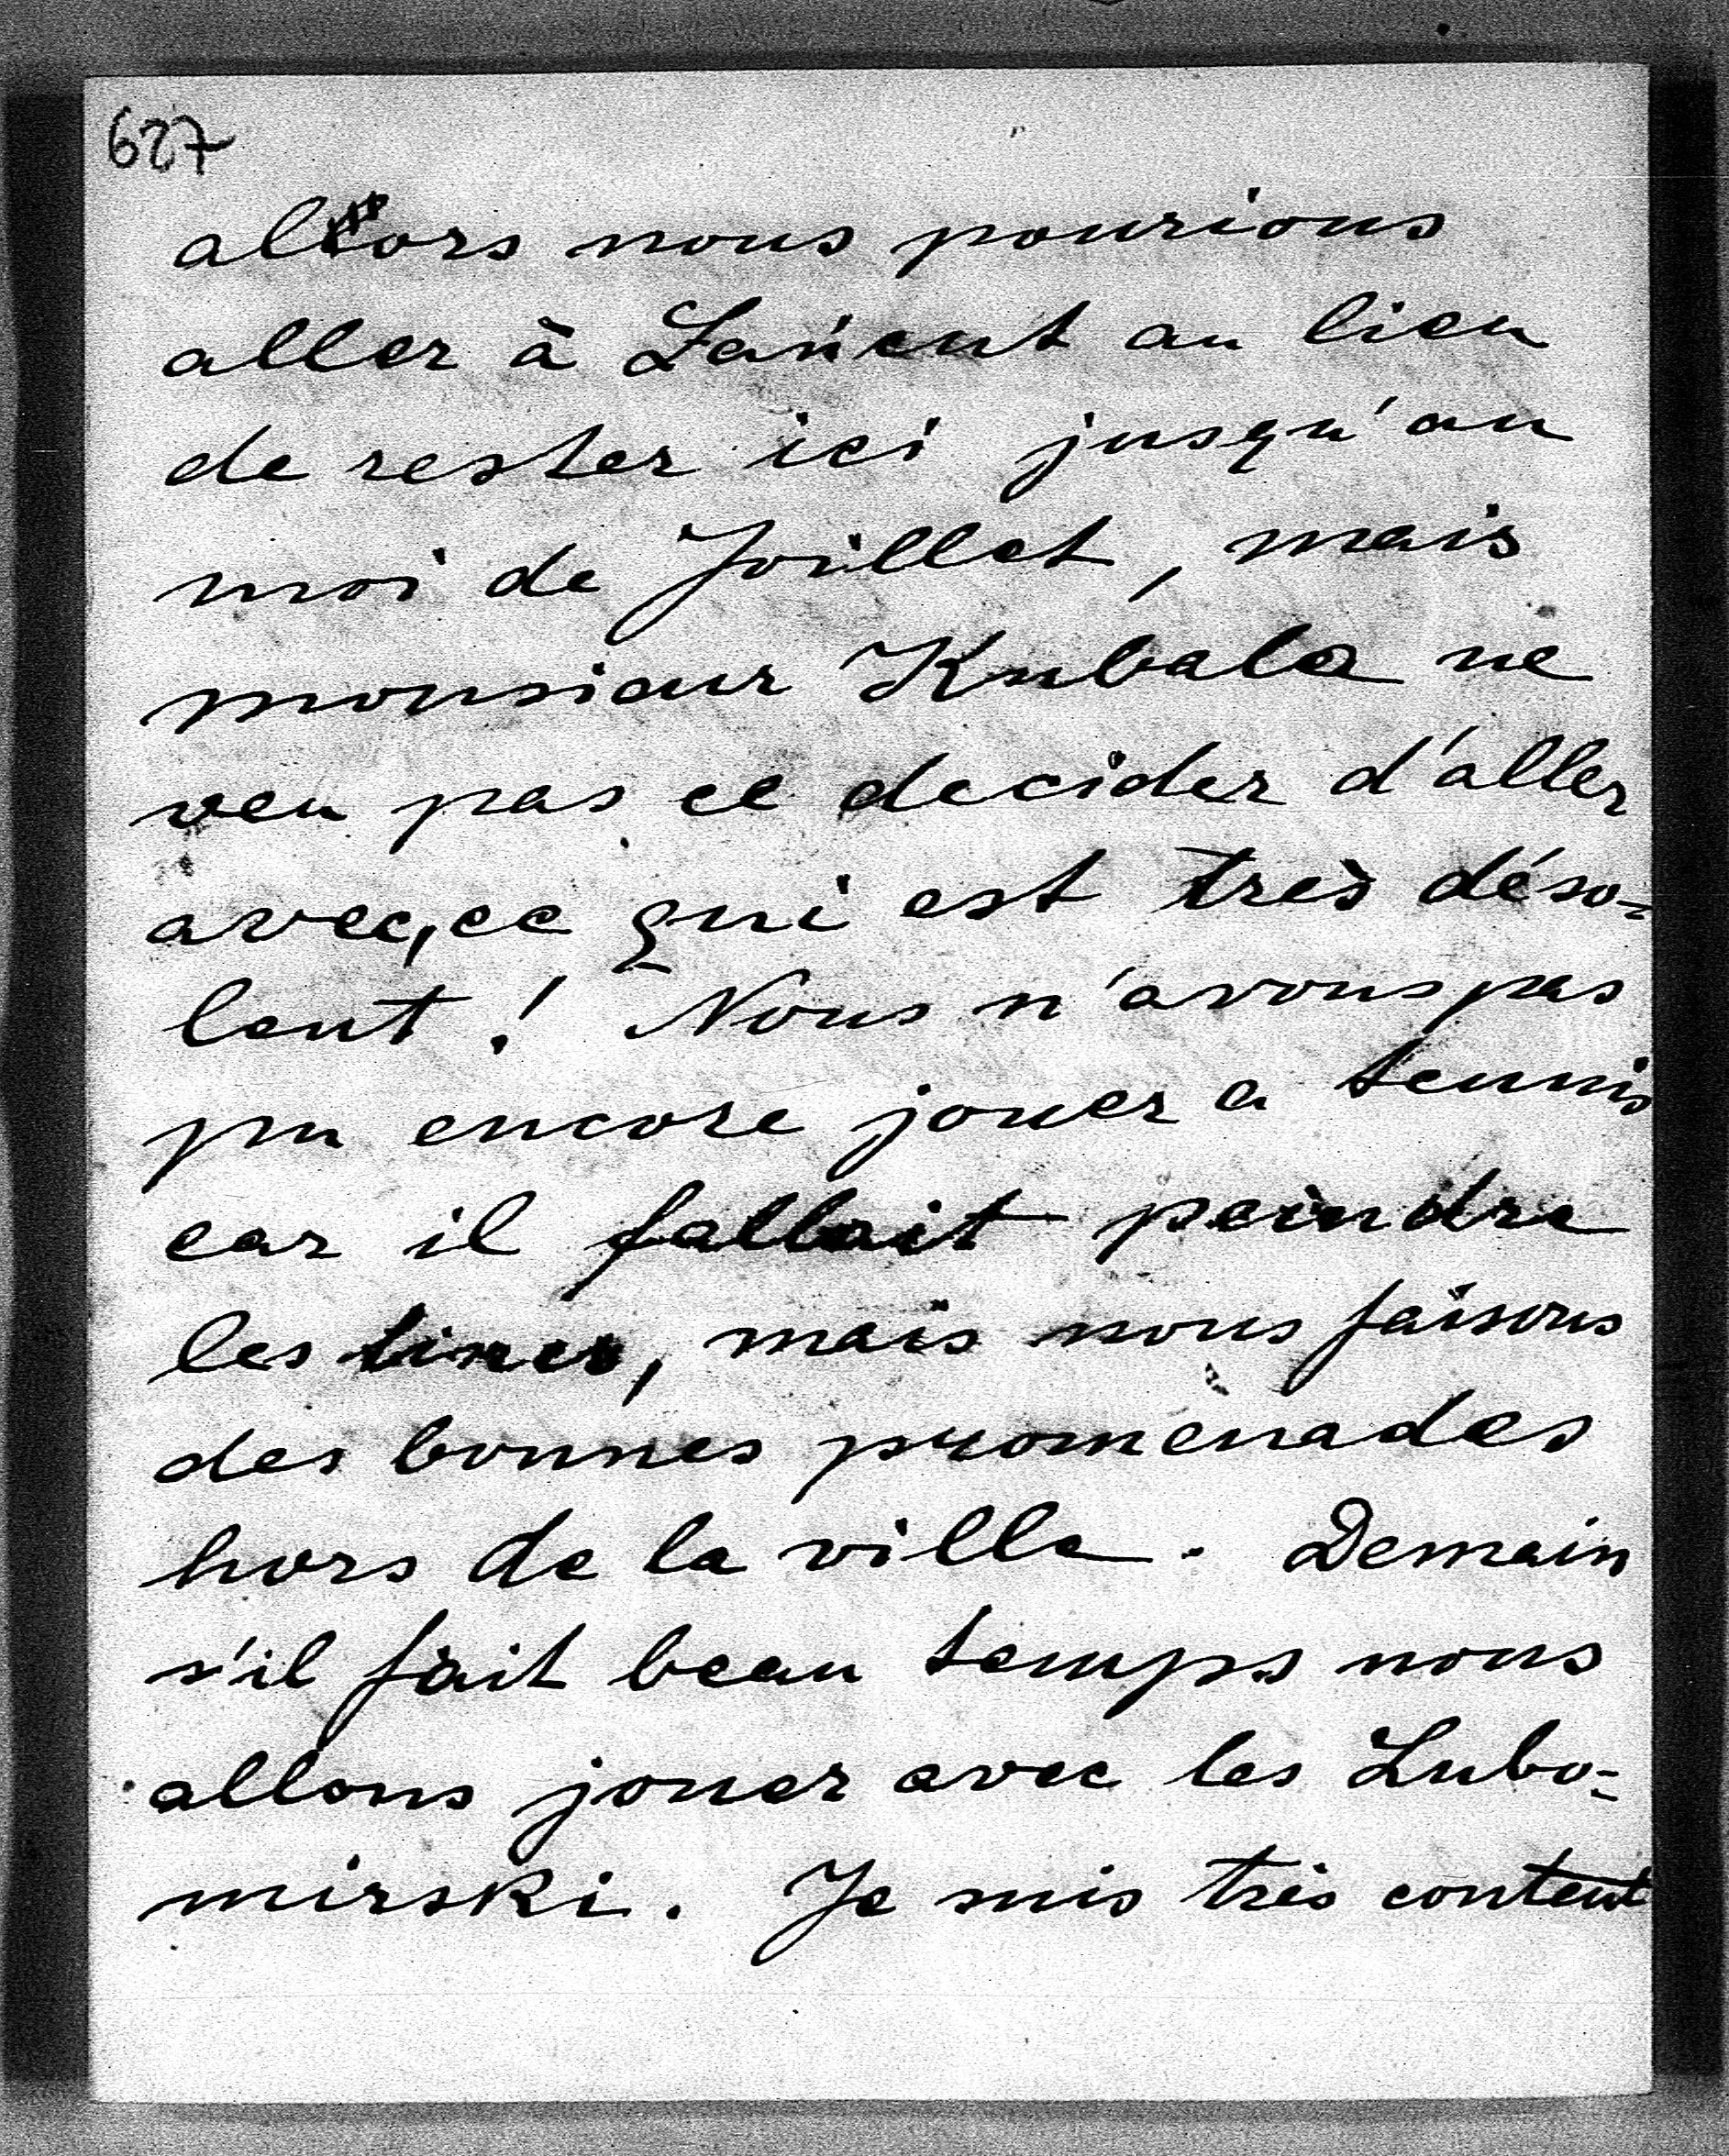 627
allors nous pourions
aller à Łańcut au lieu
de rester ici jusqu'au
moi de Joillet, mais
monsieur Kubala ne
veu pas ce decider d'aller
avec, ce qui est très déso-
lent! Nous n'avons pas
pu encore jouer a tennis
car il fallait peindre
les lines, mais nous faisons
des bonnes promenades
hors de la ville. Demain
s'il fait beau temps nous
allons jouer avec les Lubo-
mirski. Je suis très content